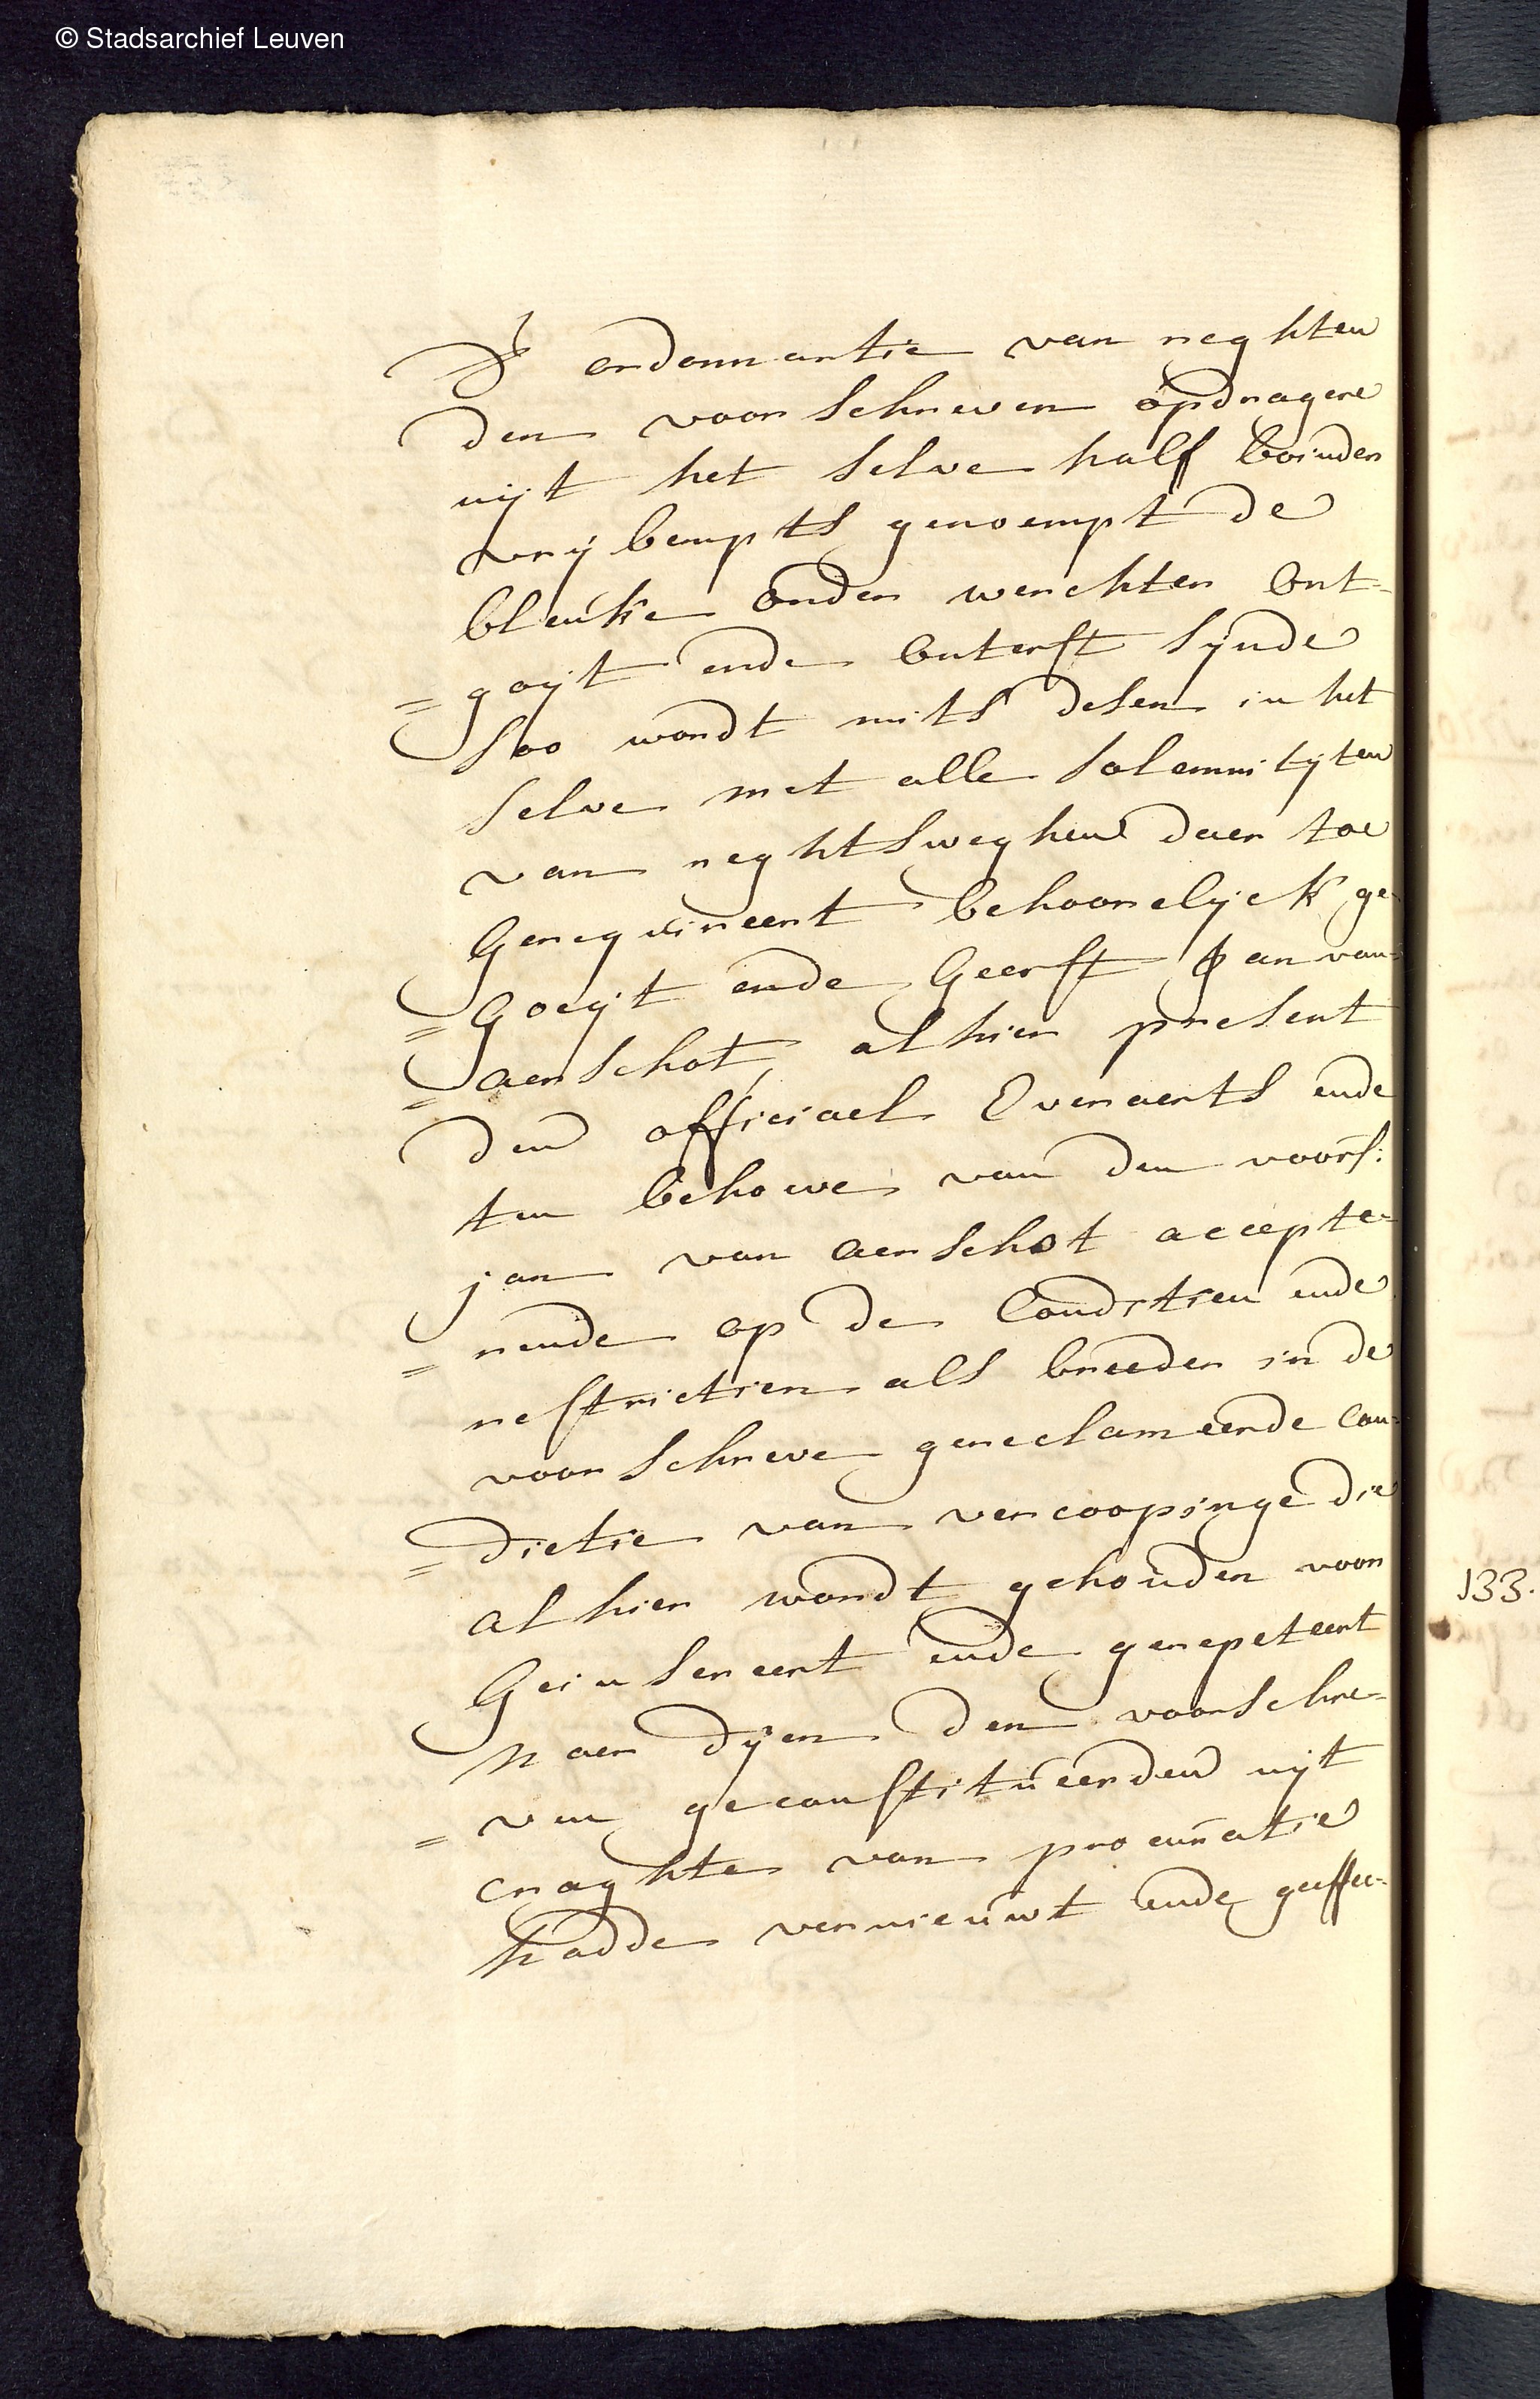 © Stadsarchief Leuven
ordonnantie van reghten
den voorschreven opdragere
uijt het selve half boinder
vrij bempts genoempt de
bleuke onder werchter ont-
=goijt ende onterft sijnde
soo wordt mits desen in het
selve met alle solemnitijten
van reghtsweghen daer toe
gerequireert behoorelijck ge-
=goeijt ende geerft Jan van
=aerschot, alhier present
den officiael Everaerts ende
ten behoeve van den voors:
jan van aerschot accepte-
=rende op de conditien ende
restrictien als breeder in de
voorschreve gereclameerde con-
=dietie van vercoopinge die
alhier wordt gehouden voor
geinsereert ende gerepeteert
naer dijen den voorschre-
=ven geconstitueerden uijt
craghte van procuratie
hadde vernieuwt ende geeffec-
133.